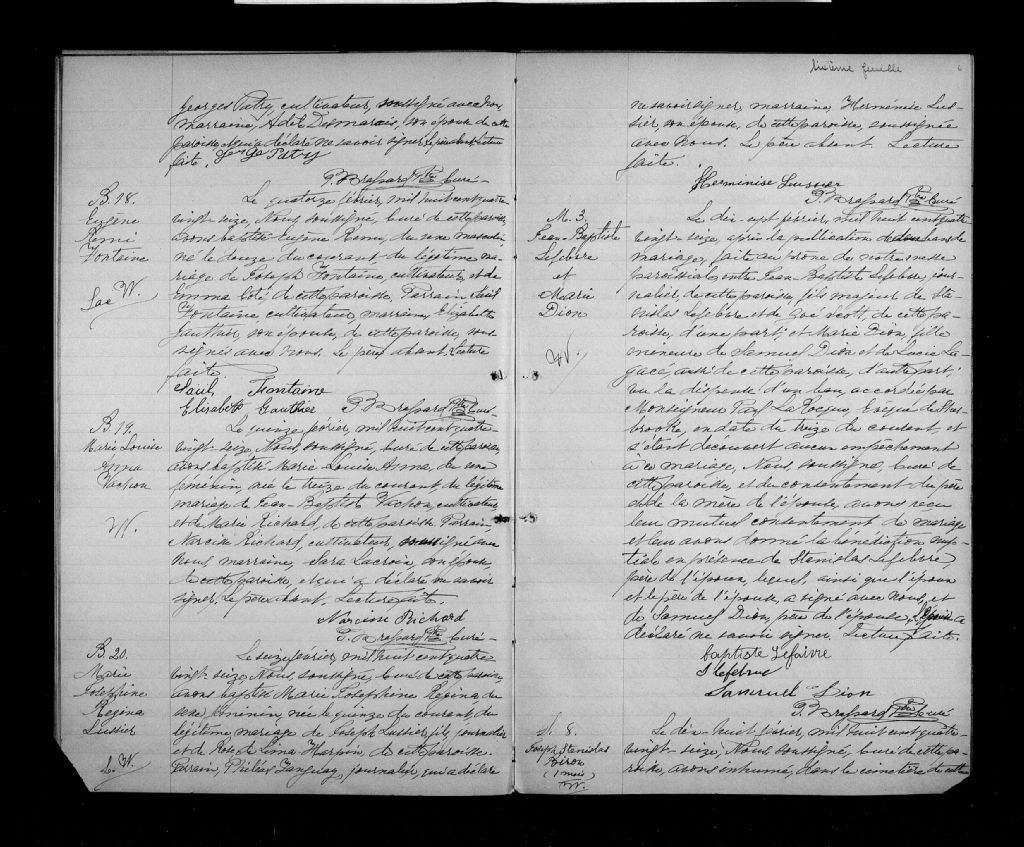 Georges Patry, cultivateur, soussigné avec nous,
marraine, Adèle Desmarais, son épouse de cette
paroisse, et qui a déclaré ne savoir signer. Le père absent. Lecture
faite. Geo Ge Patry
P. Brassard Ptre Curé-
B. 18.
Eugène
Rémi
Fontaine
Le quatorze février, mil huit cent quatre
vingt-seize, Nous, soussigné, curé de cette paroisse,
avons baptisé Eugène Rémi, du sexe masculin
né le douze du courant du légitime ma-
riage de Joseph Fontaine, cultivateur, et de
Emma Côté, de cette paroisse. Parrain Saül
Fontaine cultivateur, marraine, Elizabeth
Gauthier, son épouse, de cette paroisse, sous-
signés avec nous. Le père absent. Lecture
faite.
Saül Fontaine
Elizabeth Gauthier P. Brassard Ptre Curé-
B. 19.
Marie Louise
Anna
Vachon
Le quinze février, mil huit cent quatre
vingt-seize, Nous, soussigné, curé de cette paroisse,
avons baptisé Marie Louise Anna, du sexe
féminin, née le treize du courant du légitime
mariage de Jean-Baptiste Vachon, cultivateur
et de Marie Richard, de cette paroisse. Parrain
Narcisse Richard, cultivateur, soussigné avec
nous, marraine, Sara Lacroix, son épouse,
de cette paroisse, et qui a déclaré ne savoir
signer. Le père absent. Lecture faite.
Narcisse Richard
P. Brassard Ptre Curé-
B. 20.
Marie
Joséphine
Régina
Lussier
Le seize février, mil huit cent quatre
vingt-seize, Nous, soussigné, curé de cette paroisse,
avons baptisé Marie Joséphine Régina du
sexe féminin, née le quinze du courant, du
légitime mariage de Joseph Lussier, fils, journalier
et de Rose de Lima Harpin, de cette paroisse.
Parrain, Philéas Tanguay, journalier, qui a déclaré
sixième feuille
6
ne savoir signer, marraine, Herménise Lus-
sier, son épouse, de cette paroisse, soussignée
avec nous. Le père absent. Lecture
faite.
Herminise Lussier
P. Brassard Ptre Curé
M. 3.
Jean-Baptiste
Lefebvre
et
Marie
Dion
Le dix-sept février, mil huit cent quatre
vingt-seize, après la publication de deux bans de
mariage, faite au prône de notre messe
paroissiale, entre Jean-Baptiste Lefebvre, jour-
nalier, de cette paroisse, fils majeur de Sta-
nislas Lefebvre et de Zoé Scott, de cette pa-
roisse, d'une part, et Marie Dion, fille
mineure de Samuel Dion et de Lucie La-
gacé, aussi de cette paroisse, d'autre part;
vu la dispense d'un ban, accordée par
Monseigneur Paul LaRocque, Evêque de Sher-
brooke, en date du treize du courant, et
s'étant découvert aucun empêchement
à ce mariage, Nous, soussigné, curé de
cette paroisse, et du consentement du père
et de la mère de l'épouse, avons reçu
leur mutuel consentement de mariage
et leur avons donné la bénédiction nup-
tiale en présence de Stanislas Lefebvre,
père de l'époux, lequel, ainsi que l'époux
et le père de l'épouse, a signé avec nous, et
de Samuel Dion, père de l'épouse, l'épouse a
déclaré ne savoir signer. Lecture faite.
baptiste Lefaivre
S Lefebvre
Samuel Dion
P. Brassard Ptre Curé
S. 8.
Joseph Stanislas
Biron
(1 mois)
Le dix-huit février, mil huit cent quatre
vingt-seize, Nous soussigné, curé de cette pa-
roisse, avons inhumé, dans le cimetière de cette